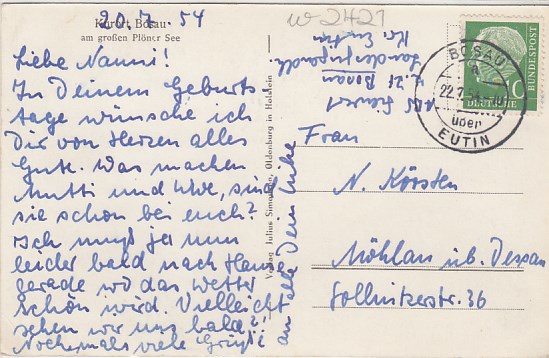 Kurort Bosau
am großen Plöner See
20.7.54
Liebe Nanni!
In Deinem Geburts
tage wünsche ich
Dir von Herzen alles
Gute. Was machen
Mutti und Uwe, sind
sie schon bei euch?
Ich muß ja nun
leider bald nach Haus
gerade wo das Wetter
schön wird. Vielleicht
sehen wir uns bald?!
Nochmals viele Grüße
an alle Dein
Verlag Julius Simonsen, Oldenburg in Holstein
w 2421
z. Zt Bosau
Kr. Eutin
DEUTSCHE
BUNDESPOST
BOSAU
a
22.7.54
über
EUTIN
Frau
N. Körsten
Möhlau üb. Dessau
Gollnitzerstr. 36